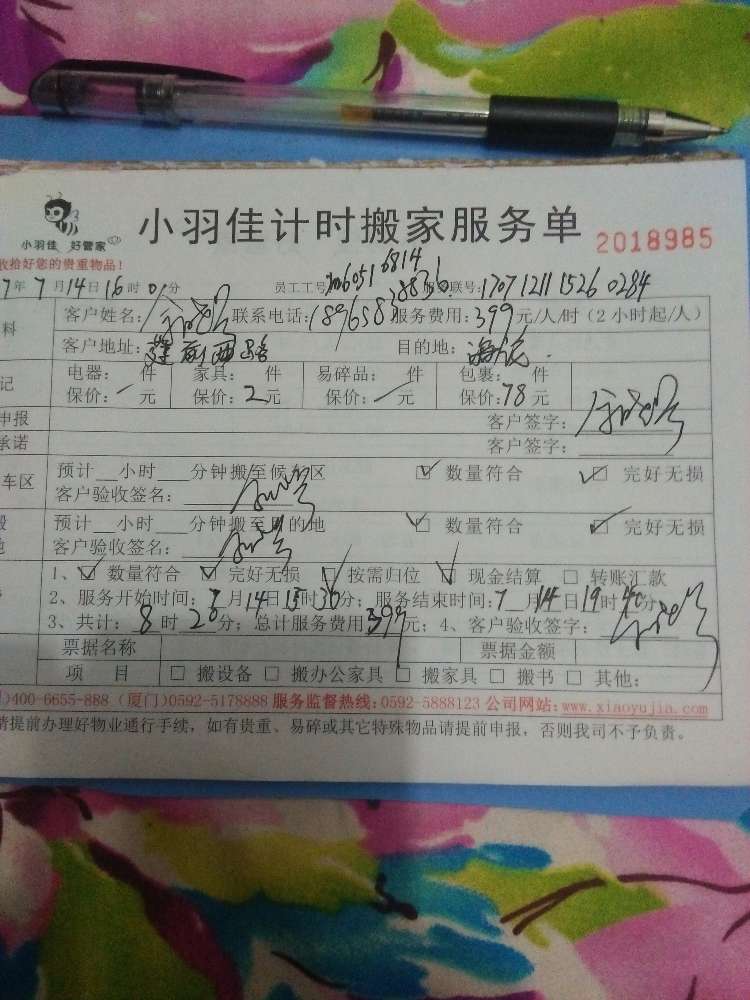 小羽佳 好管家
小羽佳计时搬家服务单
2018985
收拾好您的贵重物品!
7年7月14日16时01分 员工工号: 联号:17071211 1526 0284
料 客户姓名: 联系电话: 服务费用:399元/人/时(2小时起/人)
客户地址:莲前西路 目的地:
记 电器: 件 家具: 件 易碎品: 件 包裹: 件
保价:/元 保价:2元 保价:/元 保价:78元
申报 客户签字:
承诺 客户签字:
车区 预计__小时___分钟搬至候车区 ☑ 数量符合 ☑ 完好无损
客户验收签名:
预计__小时___分钟搬至目的地 ☑ 数量符合 ☑ 完好无损
客户验收签名:
1、☑ 数量符合 ☑ 完好无损 ☑ 按需归位 ☑ 现金结算 □ 转账汇款
2、服务开始时间:7月14日15时36分; 服务结束时间:7月14日19时40分;
3、共计:8时26分; 总计服务费用399元; 4、客户验收签字:
票据名称 票据金额
项 目 □ 搬设备 □ 搬办公家具 □ 搬家具 □ 搬书 □ 其他:
)400-6655-888 (厦门)0592-5178888 服务监督热线:0592-5888123 公司网站:www.xiaoyujia.com
请提前办理好物业通行手续,如有贵重、易碎或其它特殊物品请提前申报,否则我司不予负责。